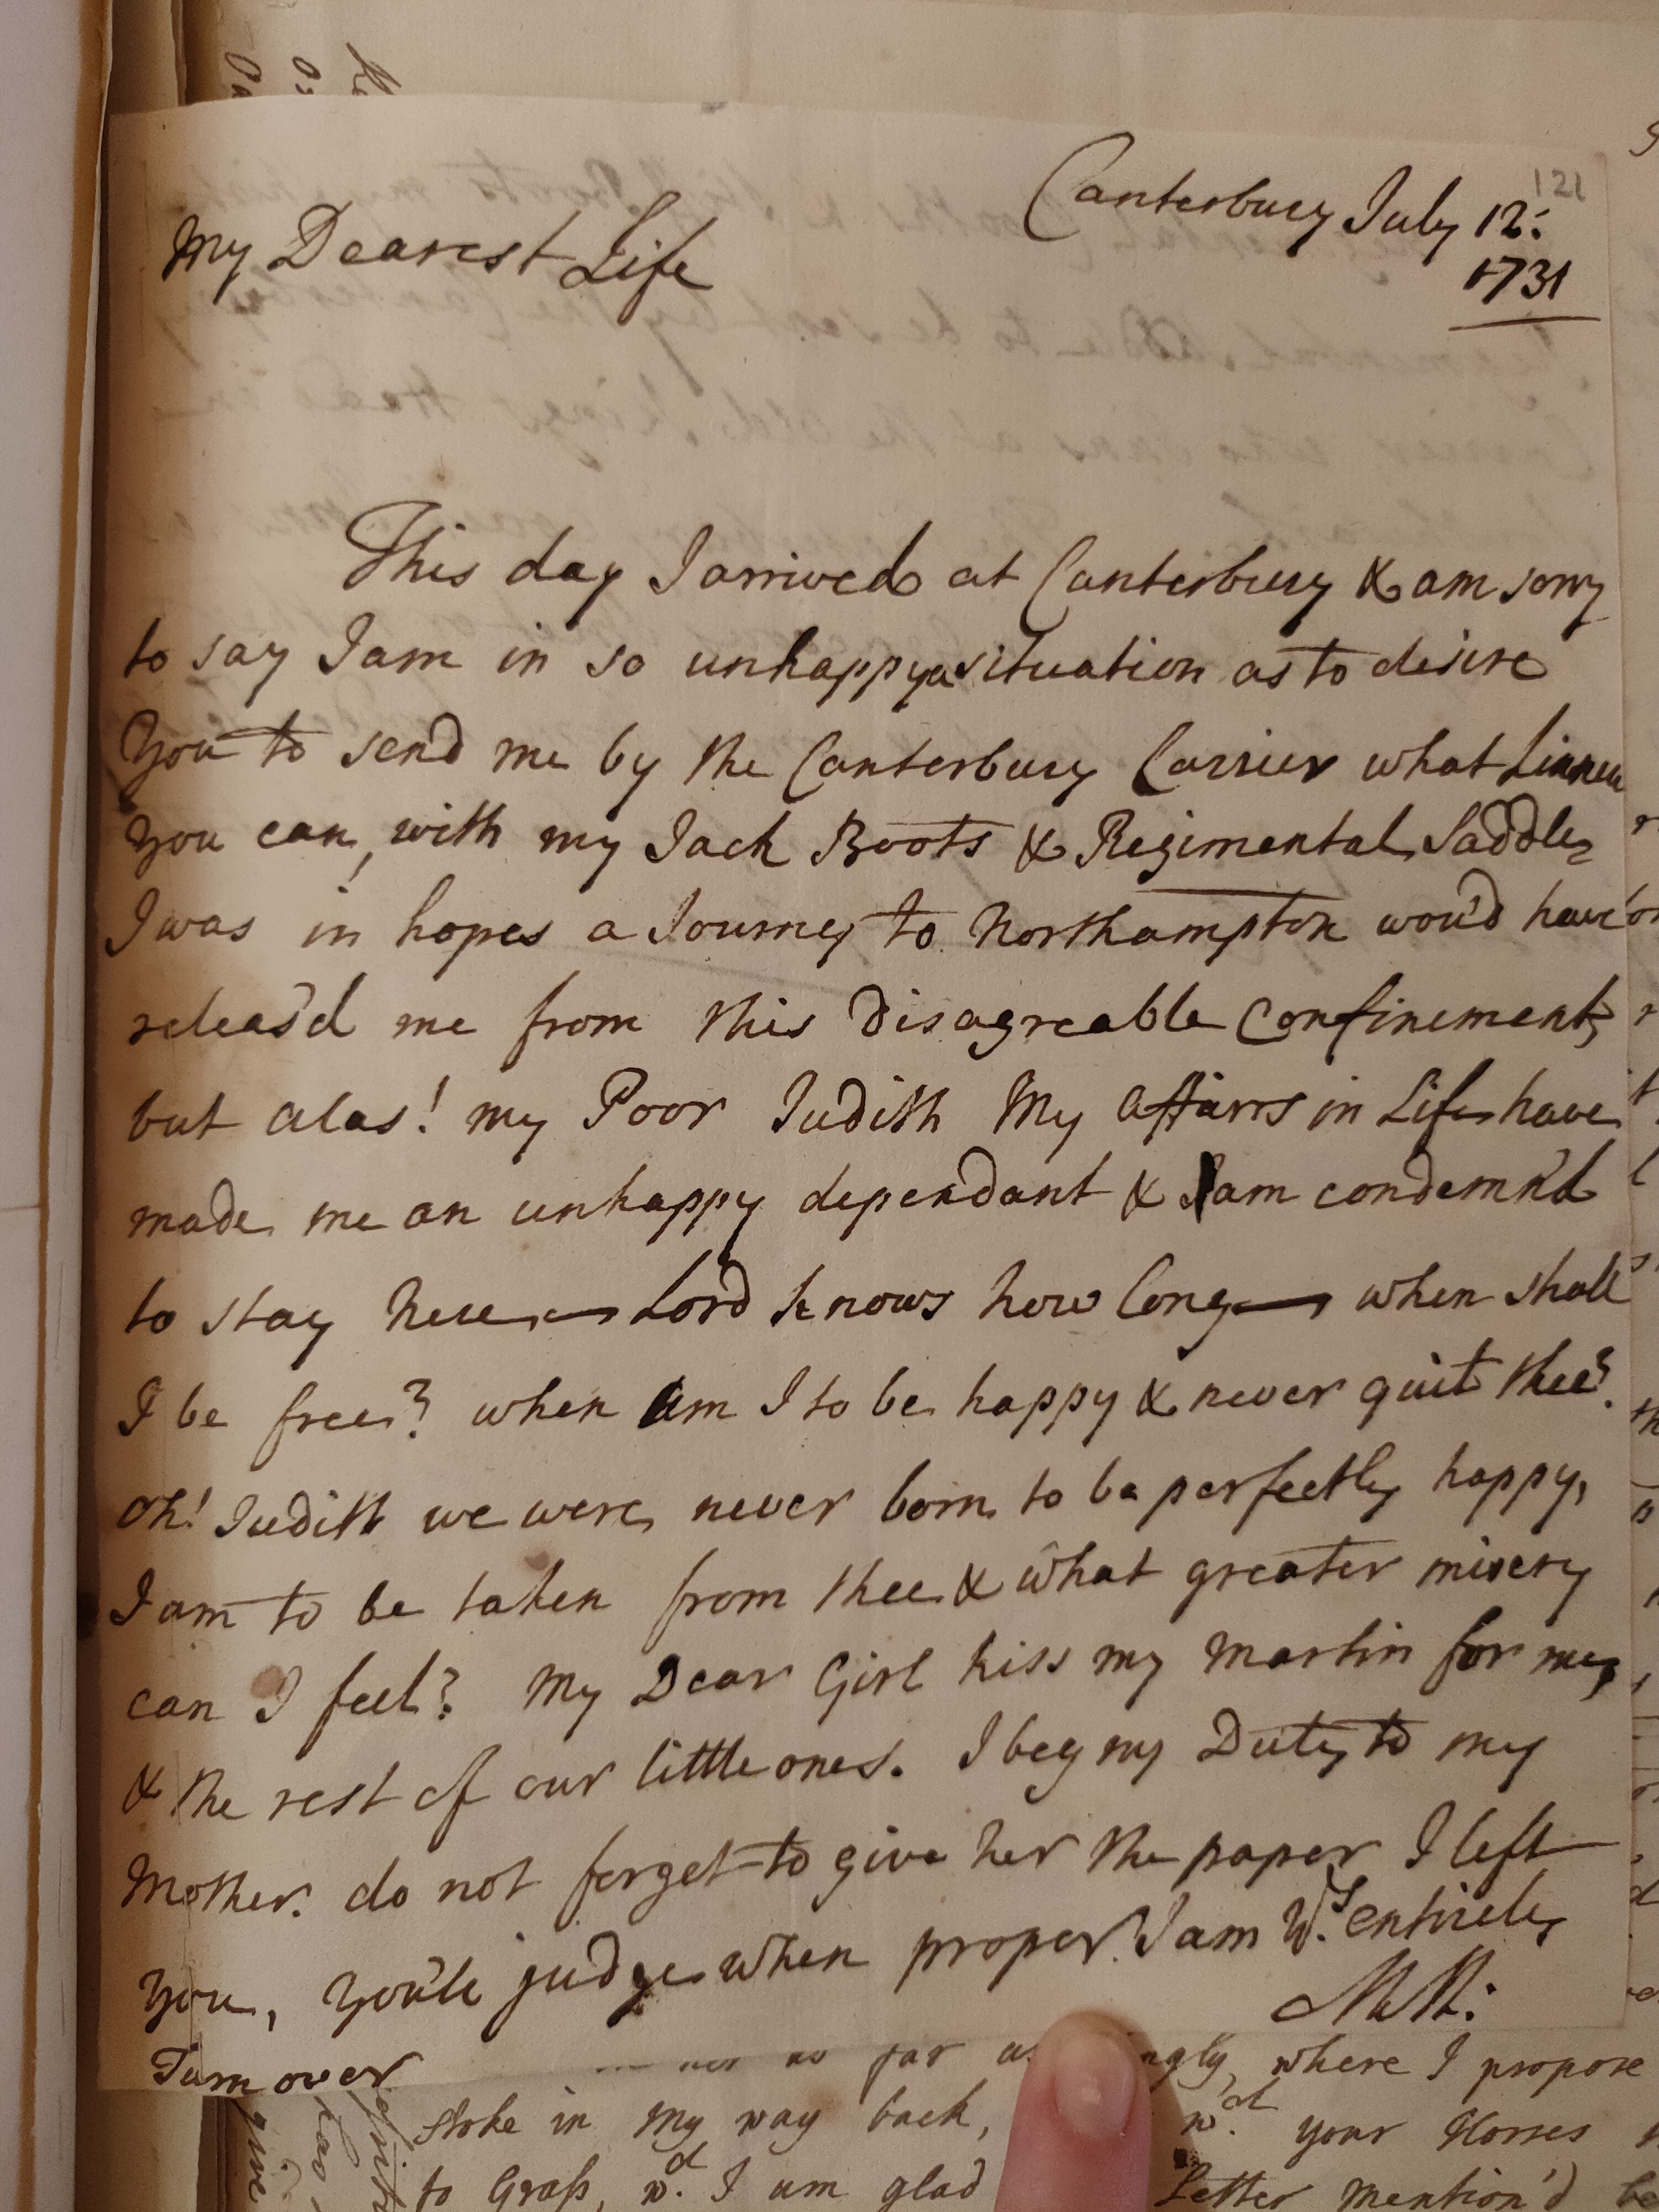 121
Canterbury July 12:
1731
My Dearest Life
This day I arrived at Canterbury & am sorry
to say I am in so unhappy a situation as to desire
You to send me by the Canterbury Carrier what Linnen
You can, with my Jack Boots & Regimental Saddle,
I was in hopes a Journey to Northampton wou'd have
releas'd me from this Disagreable Confinement,
but alas! my Poor Judith My affairs in Life have
made me an unhappy dependant & I am condemn'd
to stay here — Lord knows how long — when shall
I be free? when am I to be happy & never quit thee?
oh! Judith we were never born to be perfectly happy,
I am to be taken from thee & what greater misery
can I feel? My Dear Girl kiss my Martin for me,
& the rest of our little ones. I beg my Duty to my
Mother. do not forget to give her the paper I left
You, You'le judge when proper. I am Yrs. entirely
MM:
Turn over
far where I propose
stoke in my way back, wd. your Horses
to Grass, wd. I am glad Letter mention'd be